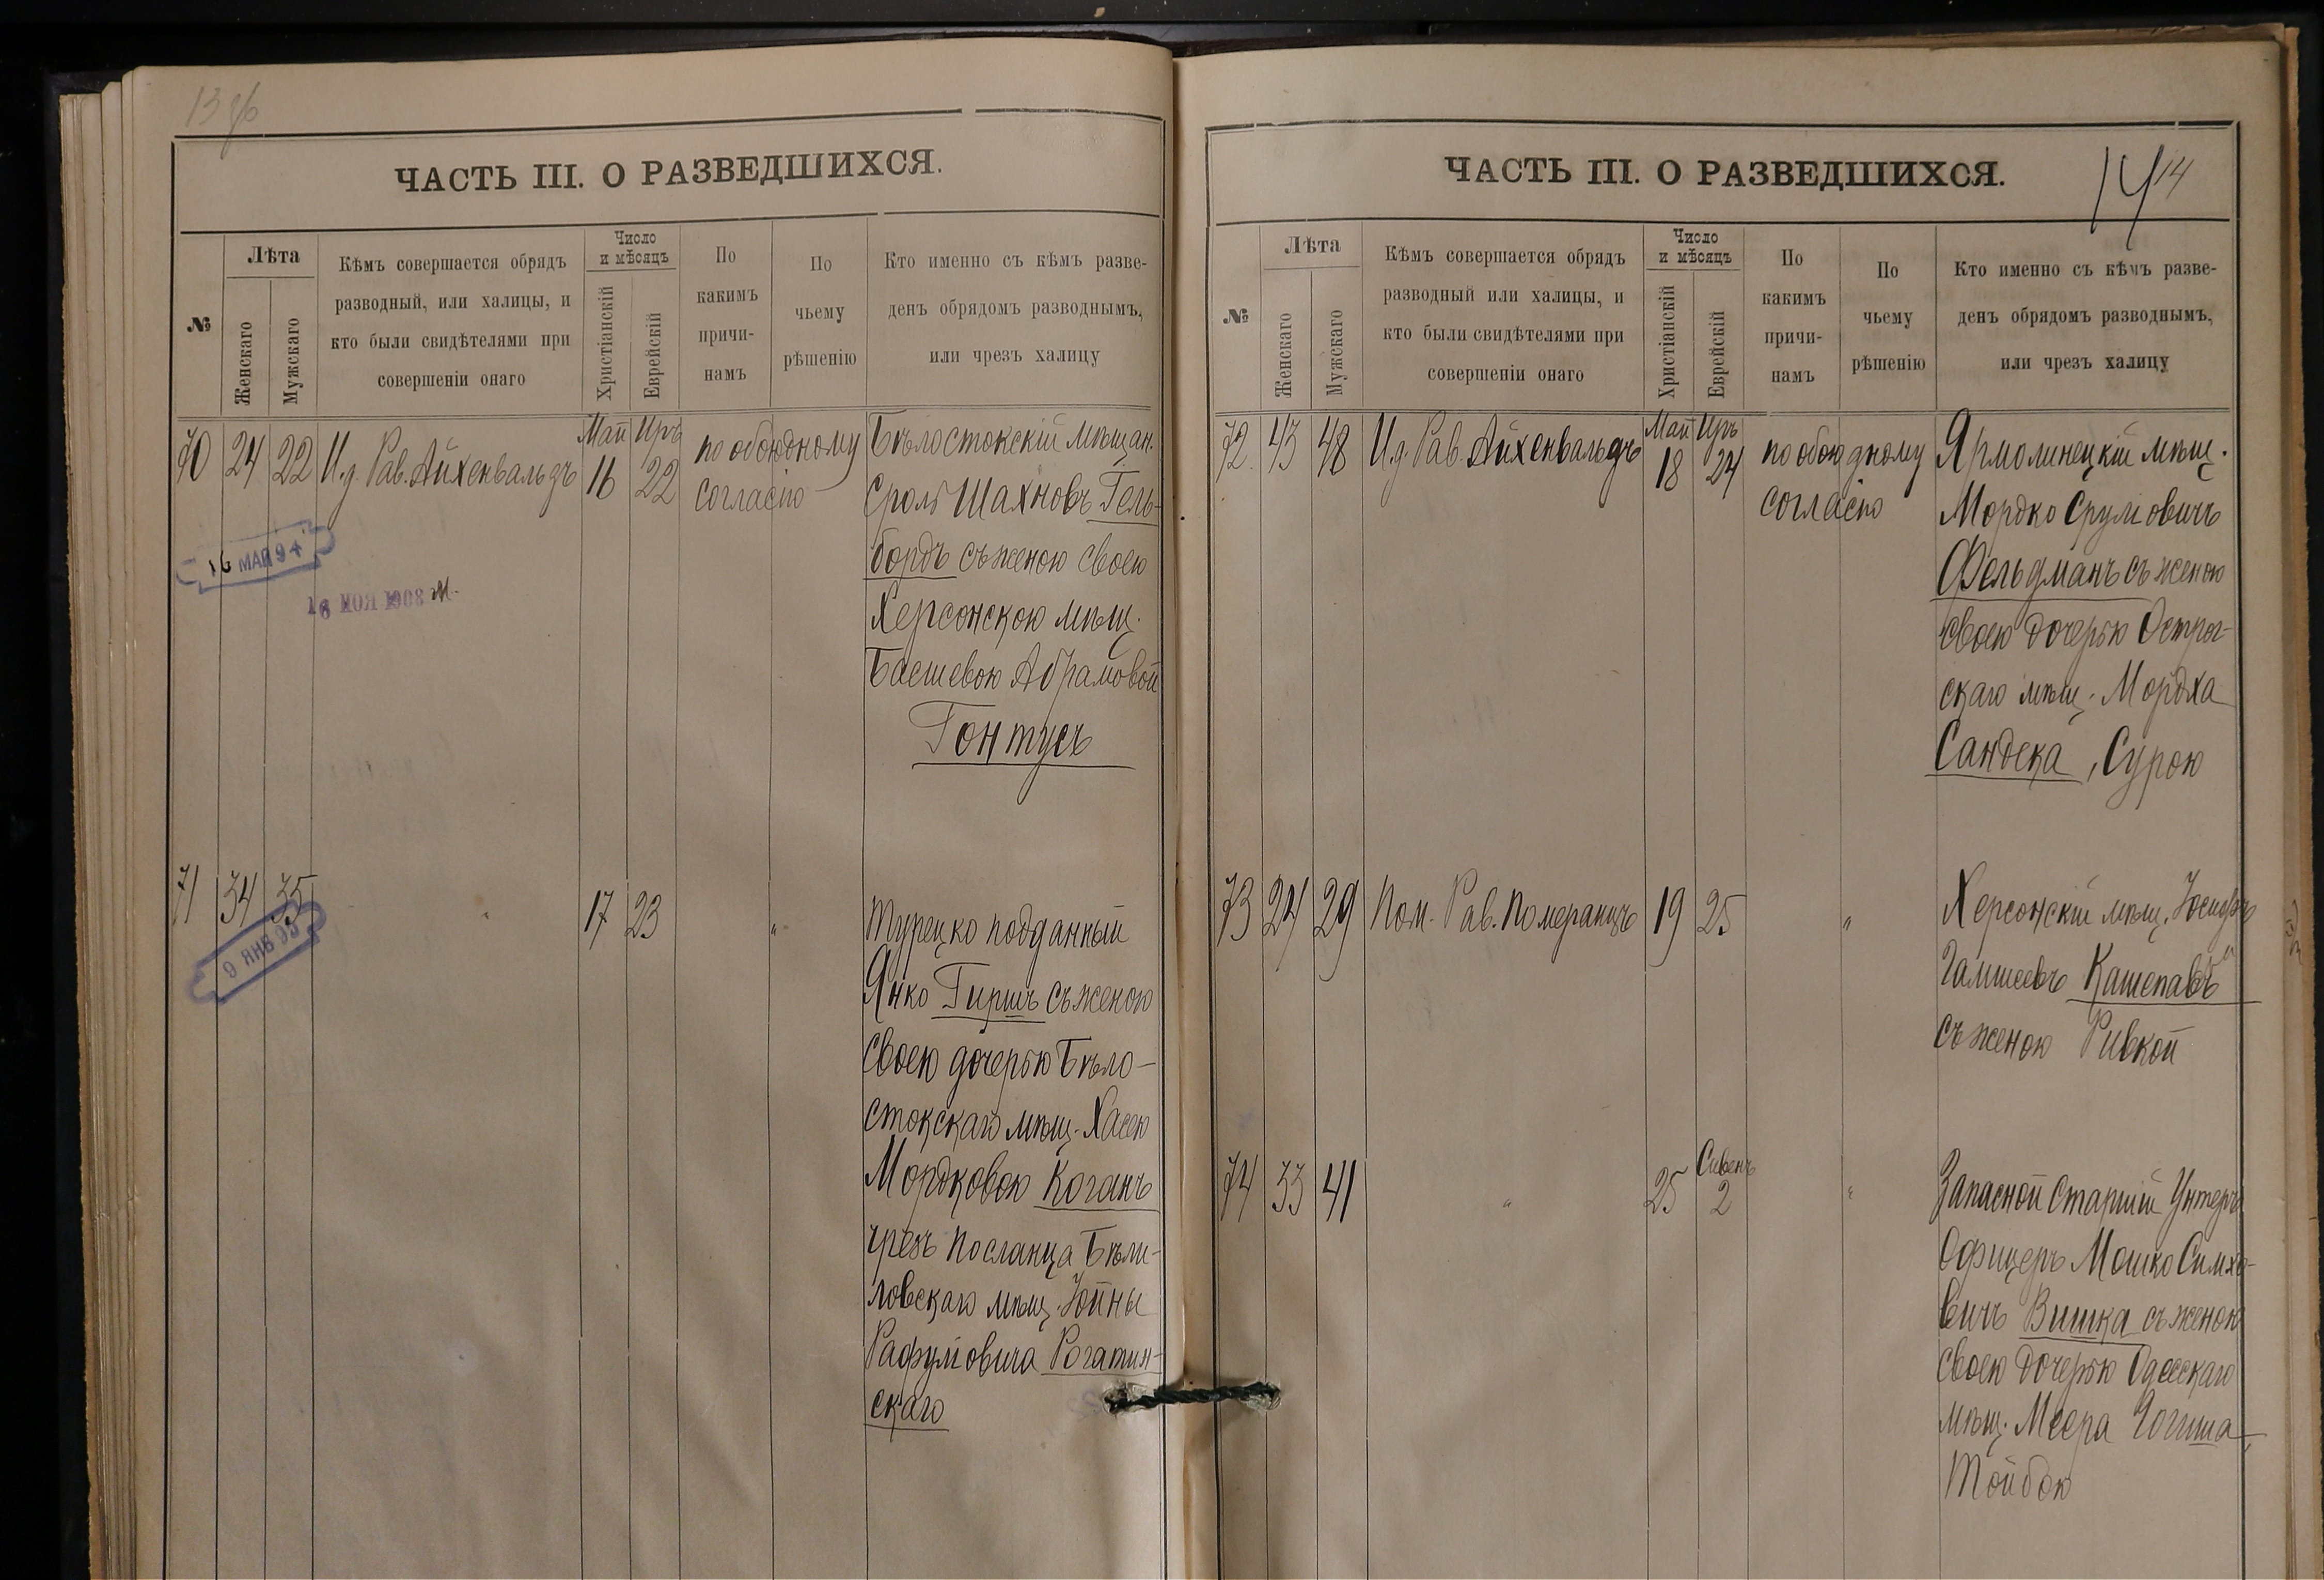 13 об
ЧАСТЬ III. О РАЗВЕДШИХСЯ.
№
Лѣта
Женскаго
Мужскаго
Кѣмъ совершается обрядъ
разводный, или халицы, и
кто были свидѣтелями при
совершеніи онаго
Число
и мѣсяцъ
Христіанскій
Еврейскій
По
какимъ
причи-
намъ
По
чьему
рѣшенію
Кто именно съ кѣмъ разве-
денъ обрядомъ разводнымъ,
или чрезъ халицу
70 24 22 И.д. Рав. Айхенвальдъ
Май Иръ
16 22
по обоюдному
согласію
Бѣлостокскій мѣщан.
Сроль Шахновъ Гель-
бордъ съ женою своею
Херсонскою мѣщ.
Басшевою Абрамовой
Гонтусъ
16 МАЯ 94
18 НОЯ 1908
71 34 35 " 17 23 "
9 ЯНВ 95
Турецко подданный
Янко Гиршъ съ женою
своею дочерью Бѣло-
стокскаго мѣщ. Хасею
Мордковою Коганъ
чрезъ посланца Бѣли-
ловскаго мѣщ. Іойны
Рафуловича Рогатин-
скаго
ЧАСТЬ III. О РАЗВЕДШИХСЯ.
14 14
№
Лѣта
Женскаго
Мужскаго
Кѣмъ совершается обрядъ
разводный или халицы, и
кто были свидѣтелями при
совершеніи онаго
Число
и мѣсяцъ
Христіанскій
Еврейскій
По
какимъ
причи-
намъ
По
чьему
рѣшенію
Кто именно съ кѣмъ разве-
денъ обрядомъ разводнымъ,
или чрезъ халицу
72. 43 48 И.д. Рав. Айхенвальдъ
Май Иръ
18 24
по обоюдному
согласію
Ярмолинецкій мѣщ.
Мордко Срулювичъ
Фельдманъ съ женою
своею дочерью Острог-
скаго мѣщ. Мордха
Сандека, Сурою
73 24 29 Пом. Рав. Померанцъ 19 25 "
Херсонскій мѣщ. Іосифъ
Кашепавъ
съ женою Ривкой
74 33 41 " 25
Сивенъ
2
"
Запасной Старшій Унтеръ
Офицеръ Мошко Симхо-
вичъ Вишка съ женою
своею дочерью Одесскаго
мѣщ. Меера
Тойбою